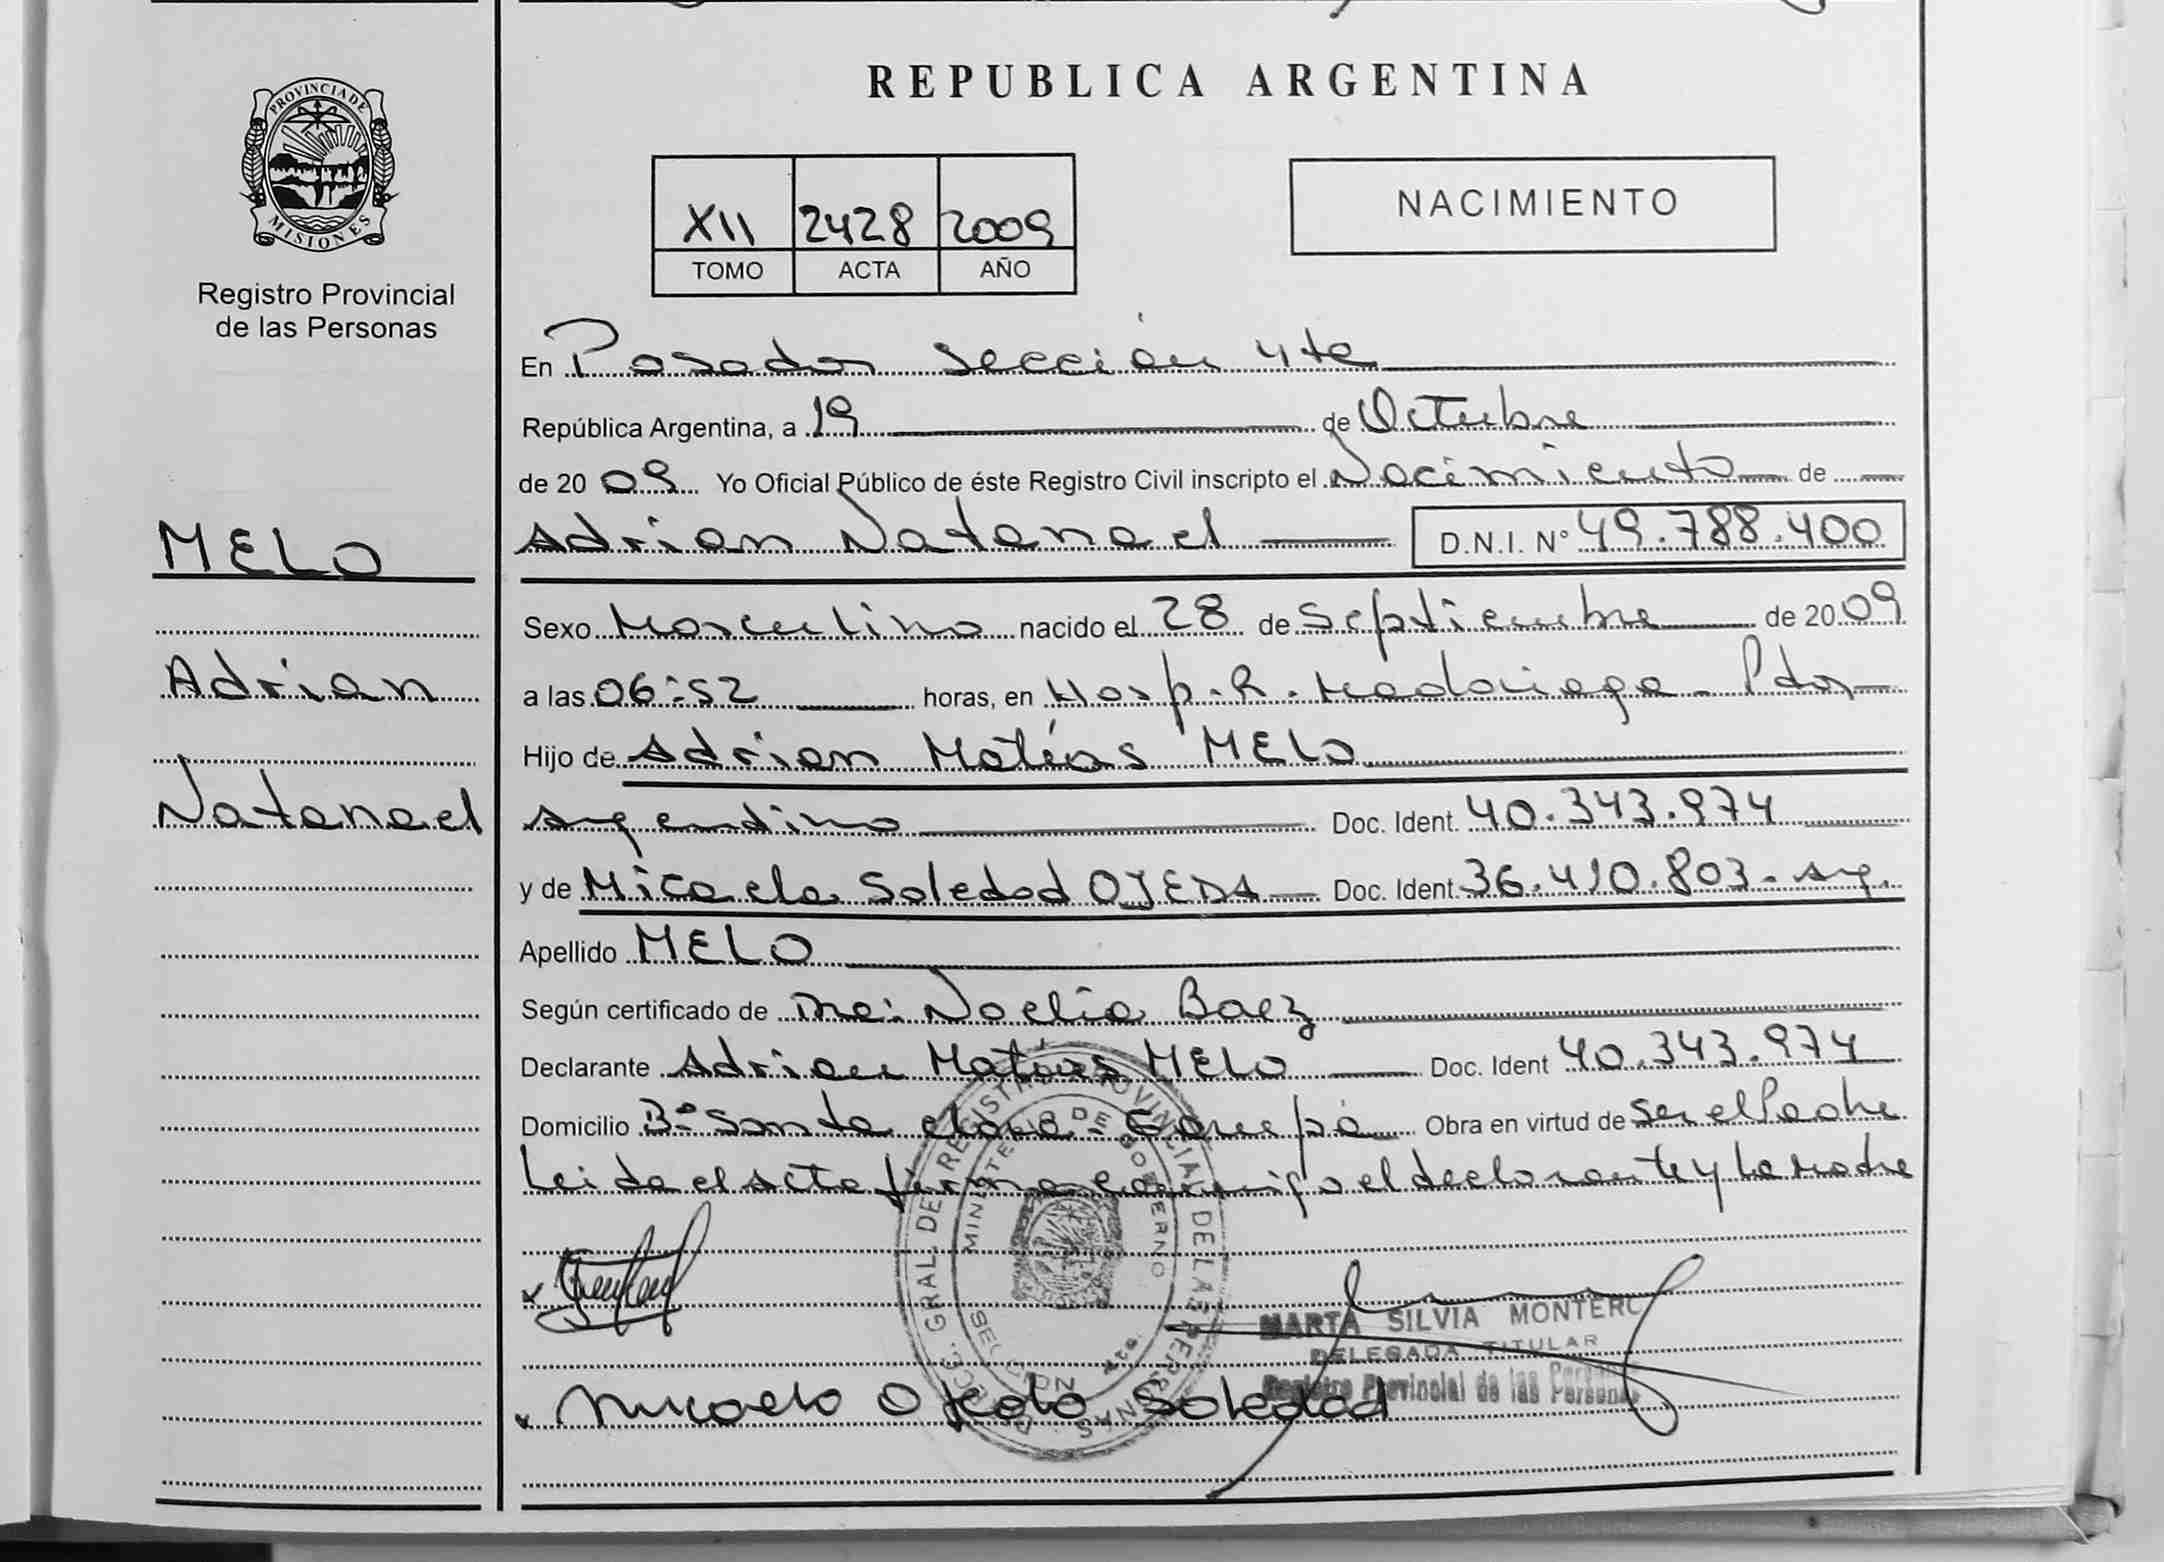 REPUBLICA ARGENTINA
PROVINCIA DE
MISIONES
Registro Provincial
de las Personas
XII 2428 2009
TOMO ACTA AÑO
NACIMIENTO
En Posadas Sección 4ta
República Argentina, a 19 de Octubre
de 2009 Yo Oficial Público de éste Registro Civil inscripto el Nacimiento de
Adrian Natanael D.N.I. N° 49.788.400
MELO
Adrian
Natanael
Sexo Masculino nacido el 28 de Septiembre de 2009
a las 06:52 horas, en Hosp. R. Madariaga - Pdas
Hijo de Adrian Matías MELO
Argentino Doc. Ident. 40.343.974
y de Micaela Soledad OJEDA Doc. Ident. 36.410.803 - Arg.
Apellido MELO
Según certificado de Noelia Baez
Declarante Adrian Matías MELO Doc. Ident 40.343.974
Domicilio B° Santa Clara - Garupá Obra en virtud de Ser el Padre
Leida el Acta firma conmigo el declarante y la Madre
GRAL. DE REGISTRO PROVINCIAL DE LAS PERSONAS
MINISTERIO DE GOBIERNO
SECCION 4ta.
MARTA SILVIA MONTERO
DELEGADA TITULAR
Registro Provincial de las Personas
x Micaela Ojeda Soledad